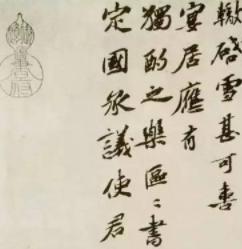 轍啓雪甚可喜
宴居應有
獨酌之樂區〻書
定國承議使君